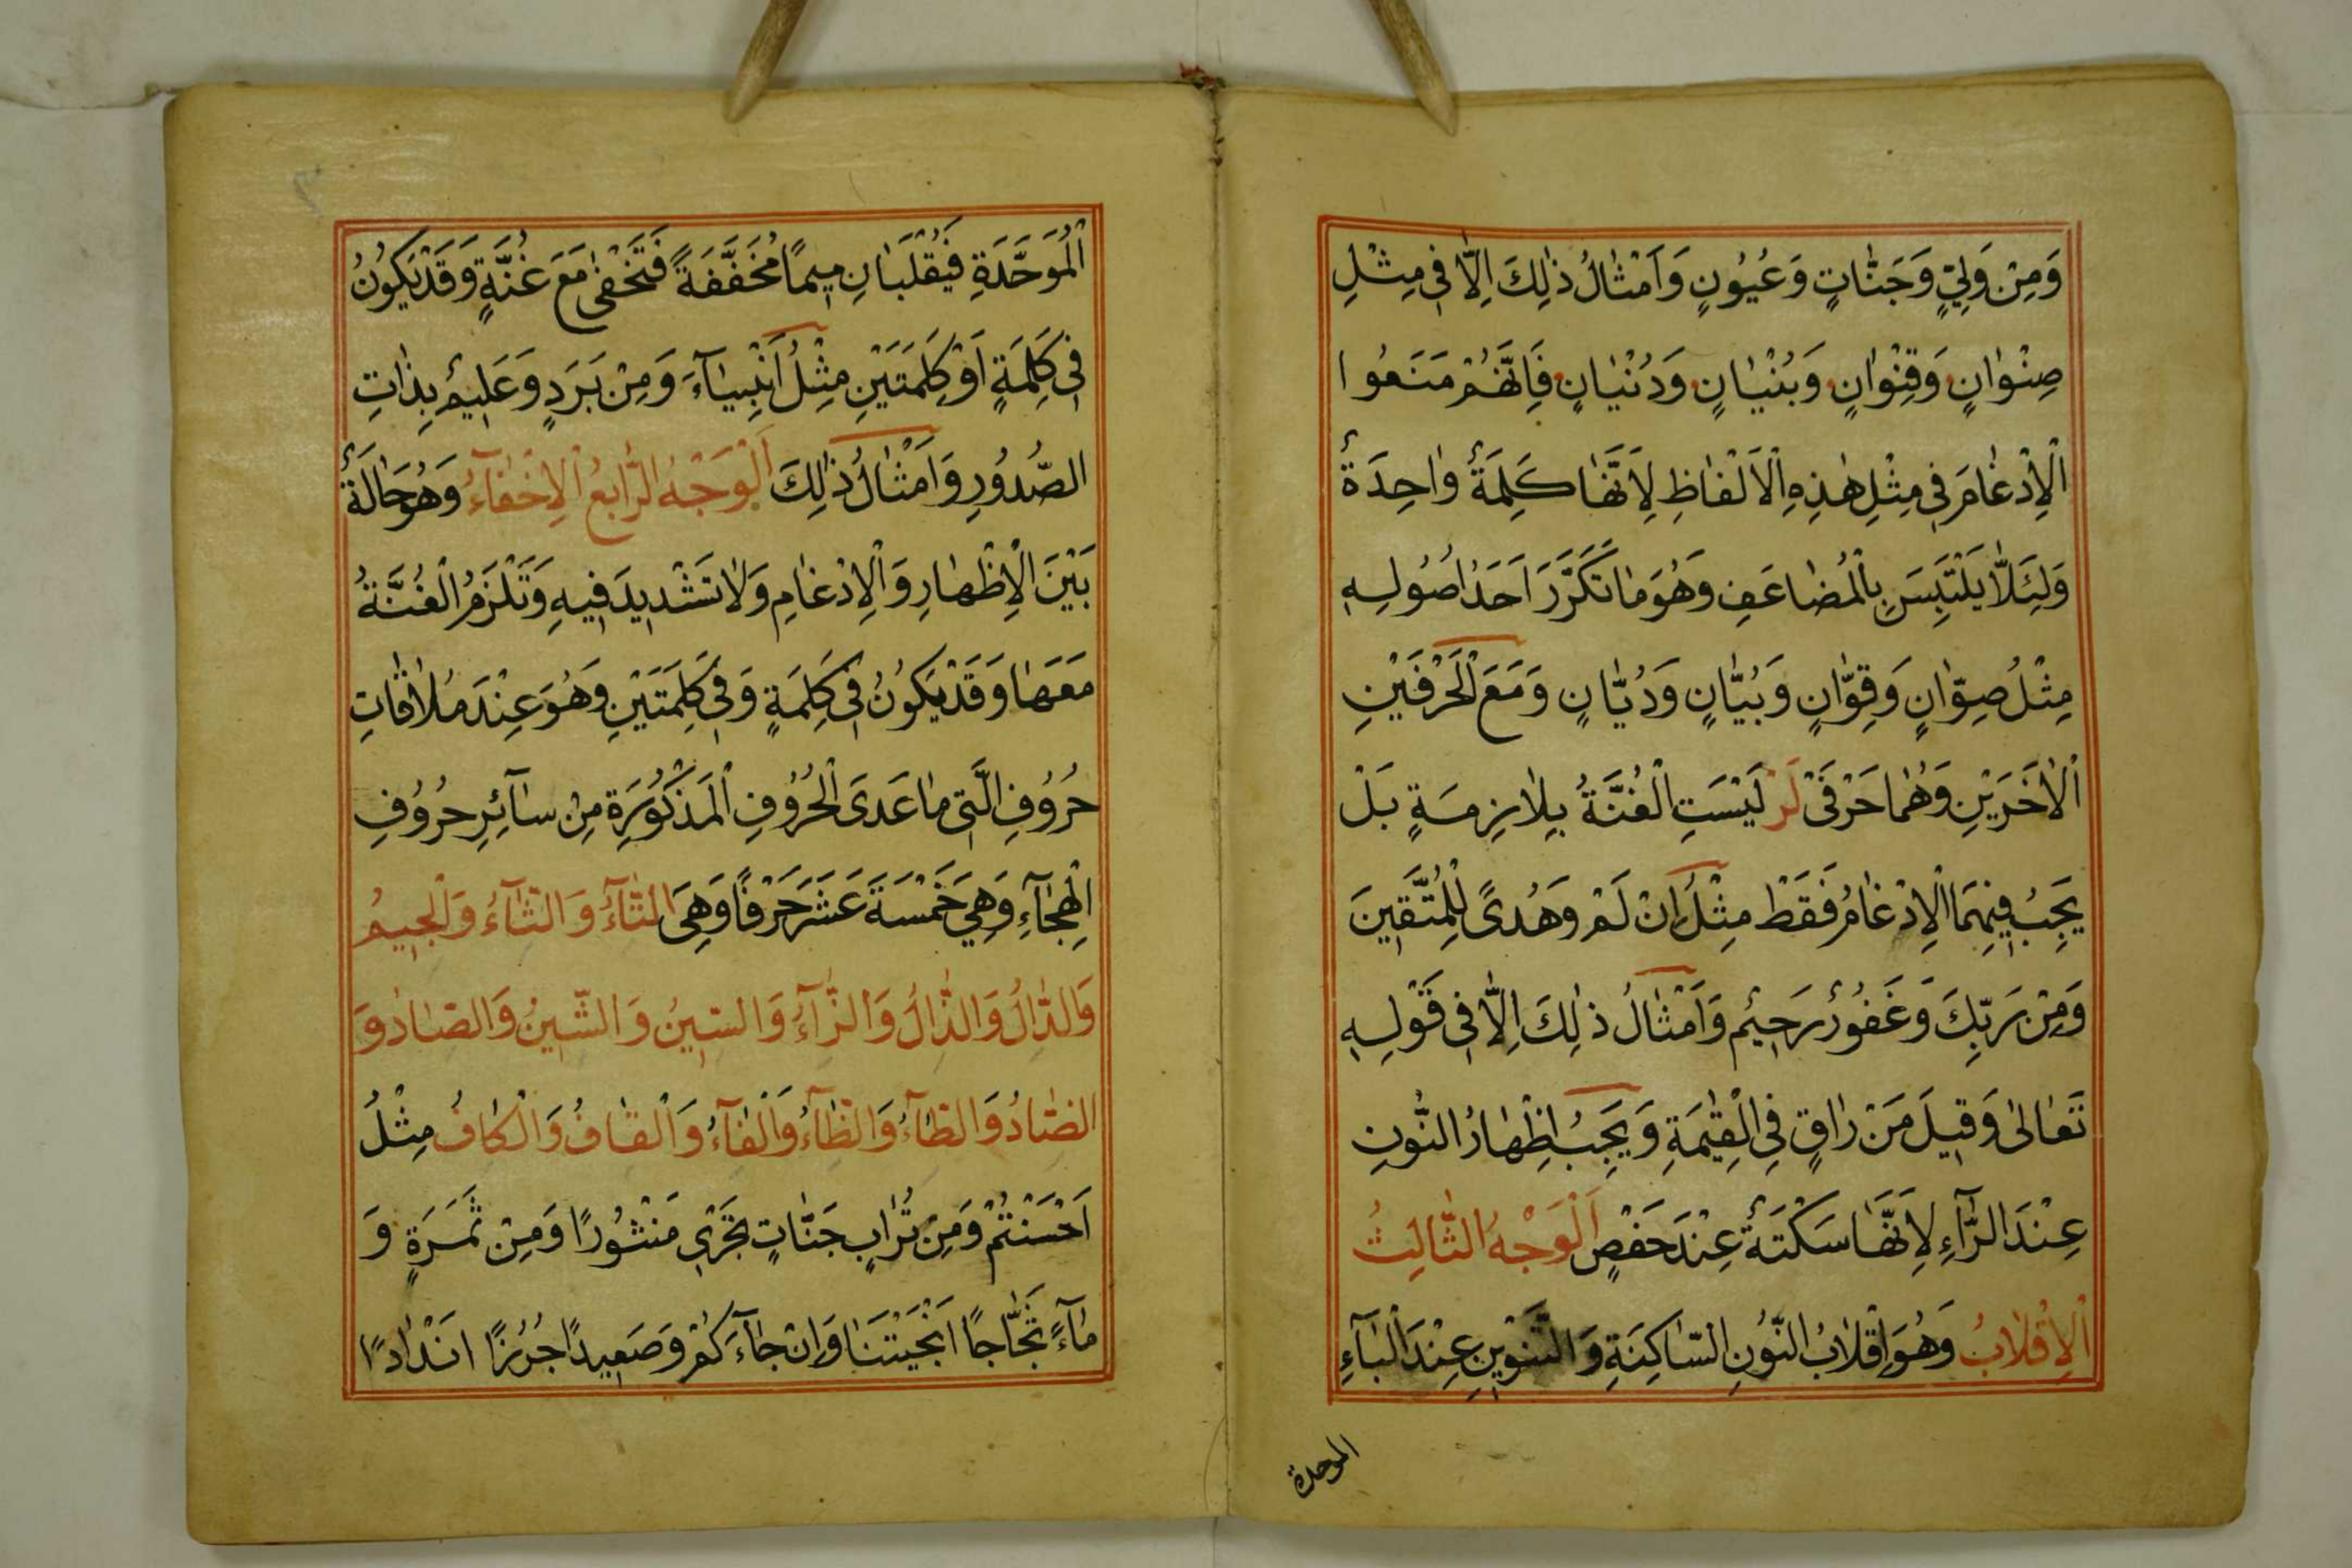 وَمِنْ وَلِيٍّ وَجَنَّاتٍ وَعُيُونٍ وَاَمْثَالُ ذٰلِكَ اِلَّا فِي مِثْلِ
صِنْوَانٍ وَقِنْوَانٍ وَبُنْيَانٍ وَدُنْيَانٍ فَاِنَّهُمْ مَنَعُوا
الْاِدْغَامَ فِي مِثْلِ هٰذِهِ الْاَلْفَاظِ لِاَنَّهَا كَلِمَةٌ وَاحِدَةٌ
وَلِئَلَّا يَلْتَبِسَ بِالْمُضَاعَفِ وَهُوَ مَا تَكَرَّرَ اَحَدُ اُصُولِهِ
مِثْلُ صِوَّانٍ وَقِوَّانٍ وَبُيَّانٍ وَدُيَّانٍ وَمَعَ الْحَرْفَيْنِ
الْاٰخَرَيْنِ وَهُمَا حَرْفَىْ لَرْ لَيْسَتِ الْغُنَّةُ بِلَازِمَةٍ بَلْ
يَجِبُ فِيهِمَا الْاِدْغَامُ فَقَطْ مِثْلُ اِنْ لَمْ وَهُدًى لِلْمُتَّقِينَ
وَمِنْ رَبِّكَ وَغَفُورٌ رَحِيمٌ وَاَمْثَالُ ذٰلِكَ اِلَّا فِي قَوْلِهِ
تَعَالٰى وَقِيلَ مَنْ رَاقٍ فِي الْقِيٰمَةِ وَيَجِبُ اِظْهَارُ النُّونِ
عِنْدَ الرَّآءِ لِاَنَّهَا سَكْتَةٌ عِنْدَ حَفْصٍ اَلْوَجْهُ الثَّالِثُ
اَلْاِقْلَابُ وَهُوَ اِقْلَابُ النُّونِ السَّاكِنَةِ وَالتَّنْوِينِ عِنْدَ الْبَآءِ
الموحدة
الْمُوَحَّدَةِ فَيُقْلَبَانِ مِيمًا مُخَفَّفَةً فَتَخْفٰى مَعَ غُنَّةٍ وَقَدْ يَكُونُ
فِي كَلِمَةٍ اَوْ كَلِمَتَيْنِ مِثْلُ اَنْبِيَآءَ وَمِنْ بَرَدٍ وَعَلِيمٌ بِذَاتِ
الصُّدُورِ وَاَمْثَالُ ذٰلِكَ اَلْوَجْهُ الرَّابِعُ الْاِخْفَآءُ وَهُوَ حَالَةٌ
بَيْنَ الْاِظْهَارِ وَالْاِدْغَامِ وَلَا تَشْدِيدَ فِيهِ وَتَلْزَمُ الْغُنَّةُ
مَعَهَا وَقَدْ يَكُونُ فِي كَلِمَةٍ وَفِي كَلِمَتَيْنِ وَهُوَ عِنْدَ مُلَاقَاتِ
حُرُوفِ الَّتِي مَا عَدَى الْحُرُوفِ الْمَذْكُورَةِ مِنْ سَآئِرِ حُرُوفِ
الْهِجَآءِ وَهِيَ خَمْسَةَ عَشَرَ حَرْفًا وَهِيَ التَّآءُ وَالثَّآءُ وَالْجِيمُ
وَالدَّالُ وَالذَّالُ وَالزَّآءُ وَالسِّينُ وَالشِّينُ وَالصَّادُ وَ
الضَّادُ وَالطَّآءُ وَالظَّآءُ وَالْفَآءُ وَالْقَافُ وَالْكَافُ مِثْلُ
اَحْسَنْتُمْ وَمِنْ تُرَابٍ جَنَّاتٍ تَجْرِي مَنْثُورًا وَمِنْ ثَمَرَةٍ وَ
مَآءً ثَجَّاجًا اَنْجَيْتَنَا وَاِنْ جَآءَكُمْ وَصَعِيدًا جُرُزًا اَنْدَادًا